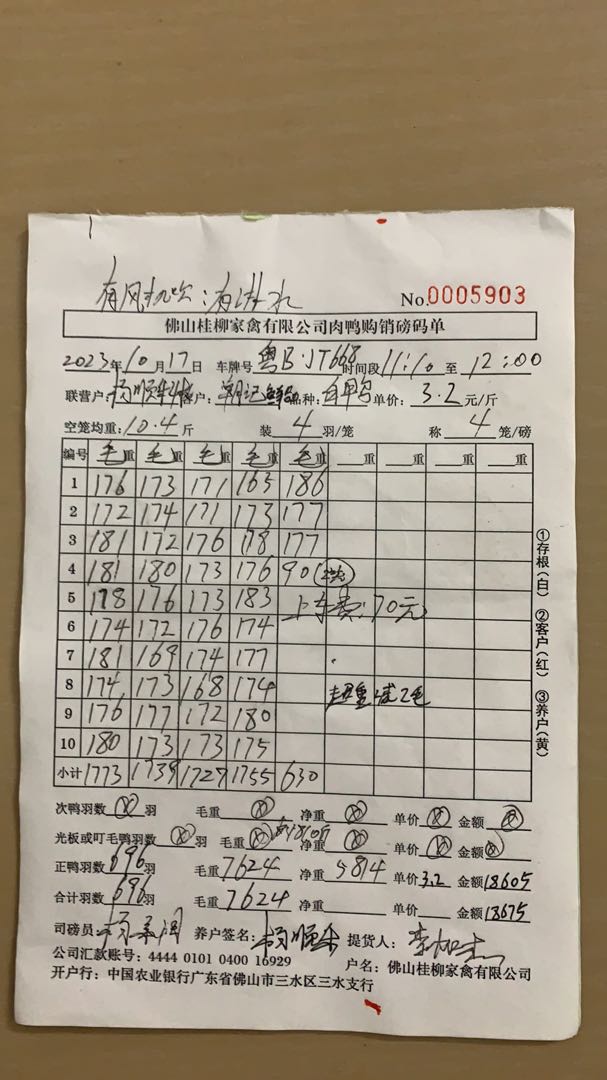 有风机吹：有淋水
No.0005903
佛山桂柳家禽有限公司肉鸭购销磅码单
2023年10月17日 车牌号 粤B·JT668 时间段 11:10 至 12:00
联营户: 客户: 品种: 单价: 3.2 元/斤
空笼均重: 10.4 斤 装 4 羽/笼 称 4 笼/磅
编号 毛重 毛重 毛重 毛重 毛重 重 重 重 重
1 176 173 171 163 186
2 172 174 171 173 177
3 181 172 176 178 177
4 181 180 173 176 90
5 178 176 173 183 上车费:70元
6 174 172 176 174
7 181 169 174 177
8 174 173 168 174 超重减2毛
9 176 177 172 180
10 180 173 173 175
小计 1773 1739 1727 1755 630
①存根(白) ②客户(红) ③养户(黄)
次鸭羽数 羽 毛重 净重 单价 金额
光板或叮毛鸭羽数 羽 毛重 净重 单价 金额
正鸭羽数 696 毛重 7624 净重 5814 单价 3.2 金额 18605
合计羽数 696 毛重 7624 净重 单价 金额 18675
司磅员: 养户签名: 提货人:
公司汇款账号: 4444 0101 0400 16929 户名: 佛山桂柳家禽有限公司
开户行: 中国农业银行广东省佛山市三水区三水支行